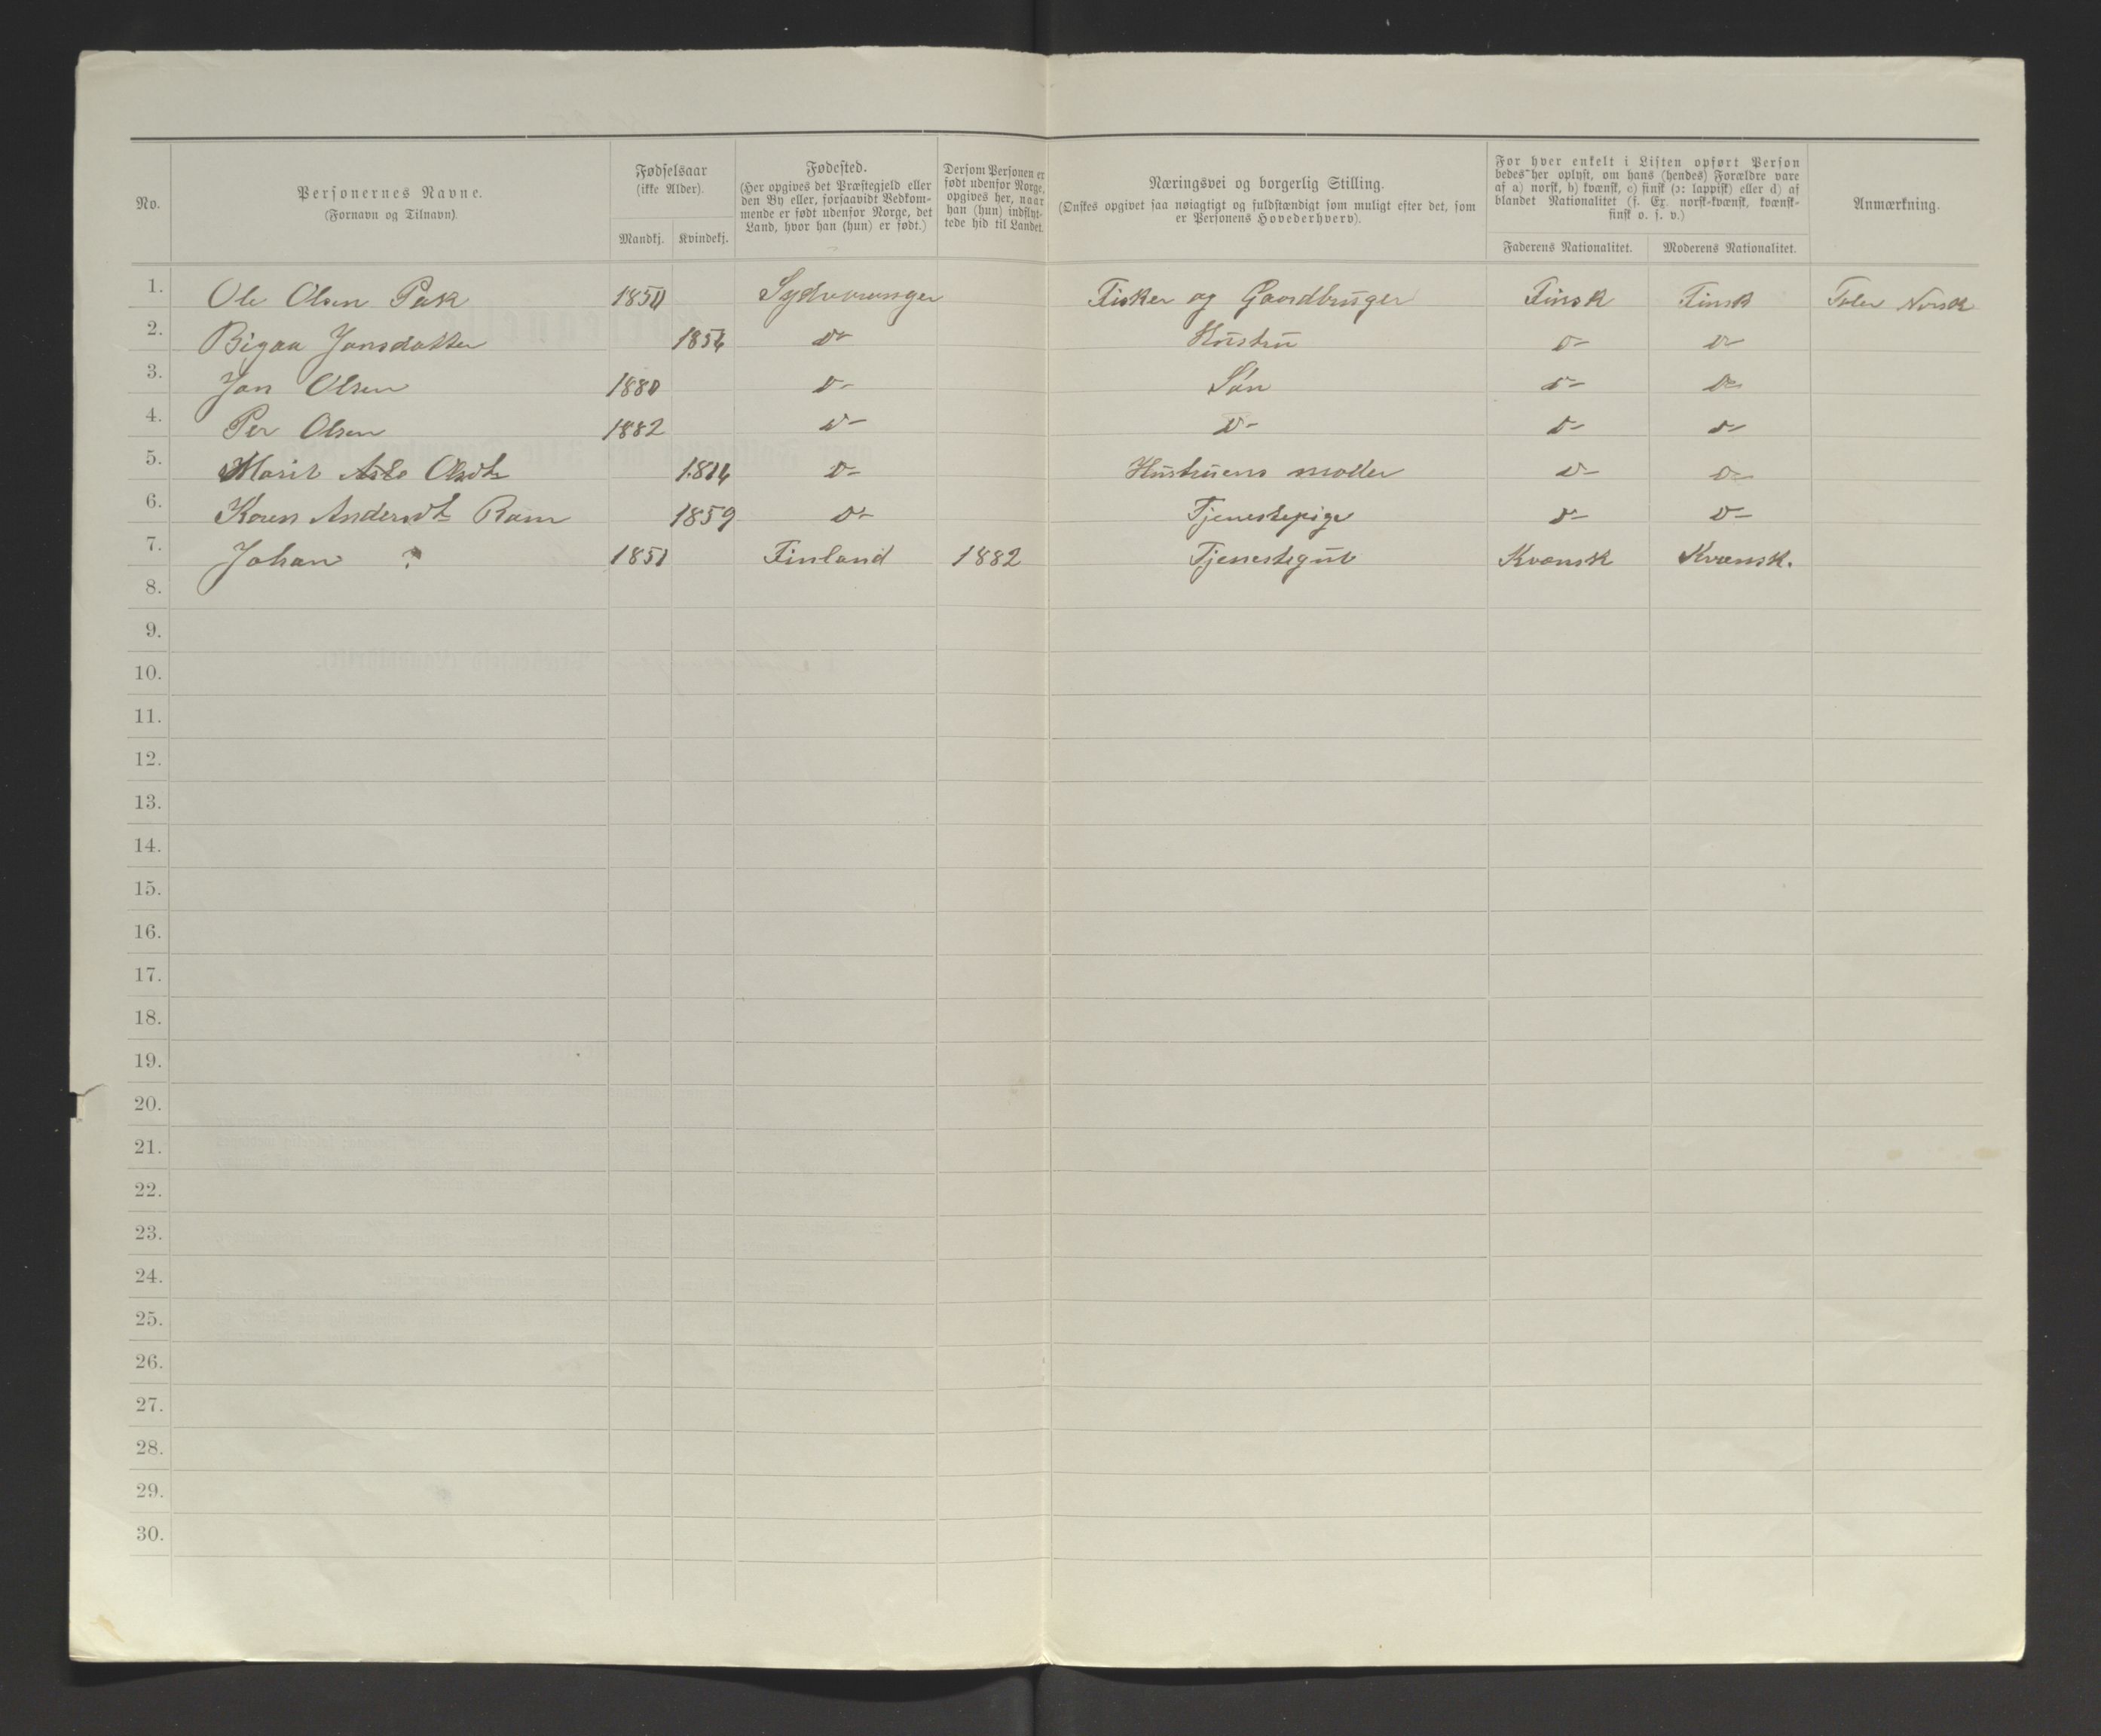 No.
Personernes Navne.
(Fornavn og Tilnavn).
Fødselsaar
(ikke Alder).
Mandkj. Kvindekj.
Fødested.
(Her opgives det Præstegjeld eller
den By eller, forsaavidt Vedkom-
mende er født udenfor Norge, det
Land, hvor han (hun) er født.)
Dersom Personen er
født udenfor Norge,
opgives her, naar
han (hun) indflyt-
tede hid til Landet.
Næringsvei og borgerlig Stilling.
(Ønskes opgivet saa nøiagtigt og fuldstændigt som muligt efter det, som
er Personens Hovederhverv).
For hver enkelt i Listen opført Person
bedes her oplyst, om hans (hendes) Forældre vare
af a) norsk, b) kvænsk, c) finsk (ɔ: lappisk) eller d) af
blandet Nationalitet (f. Ex. norsk-kvænsk, kvænsk-
finsk o. s. v.)
Faderens Nationalitet. Moderens Nationalitet.
Anmærkning.
1. Ole Olsen Pak 1850 Sydvaranger Fisker og Gaardbruger Finsk Finsk Taler Norsk
2. Bigaa Jonsdatter 1854 D- Hustru D- D-
3. Jon Olsen 1880 D- Søn D- D-
4. Per Olsen 1882 D- D- D- D-
5. Marit Olsdtr 1814 D- Hustruens moder D- D-
6. Karen Andersdtr Ram 1859 D- Tjenestepige D- D-
7. Johan ? 1851 Finland 1882 Tjenestegut Kvænsk Kvænsk.
8.
9.
10.
11.
12.
13.
14.
15.
16.
17.
18.
19.
20.
21.
22.
23.
24.
25.
26.
27.
28.
29.
30.